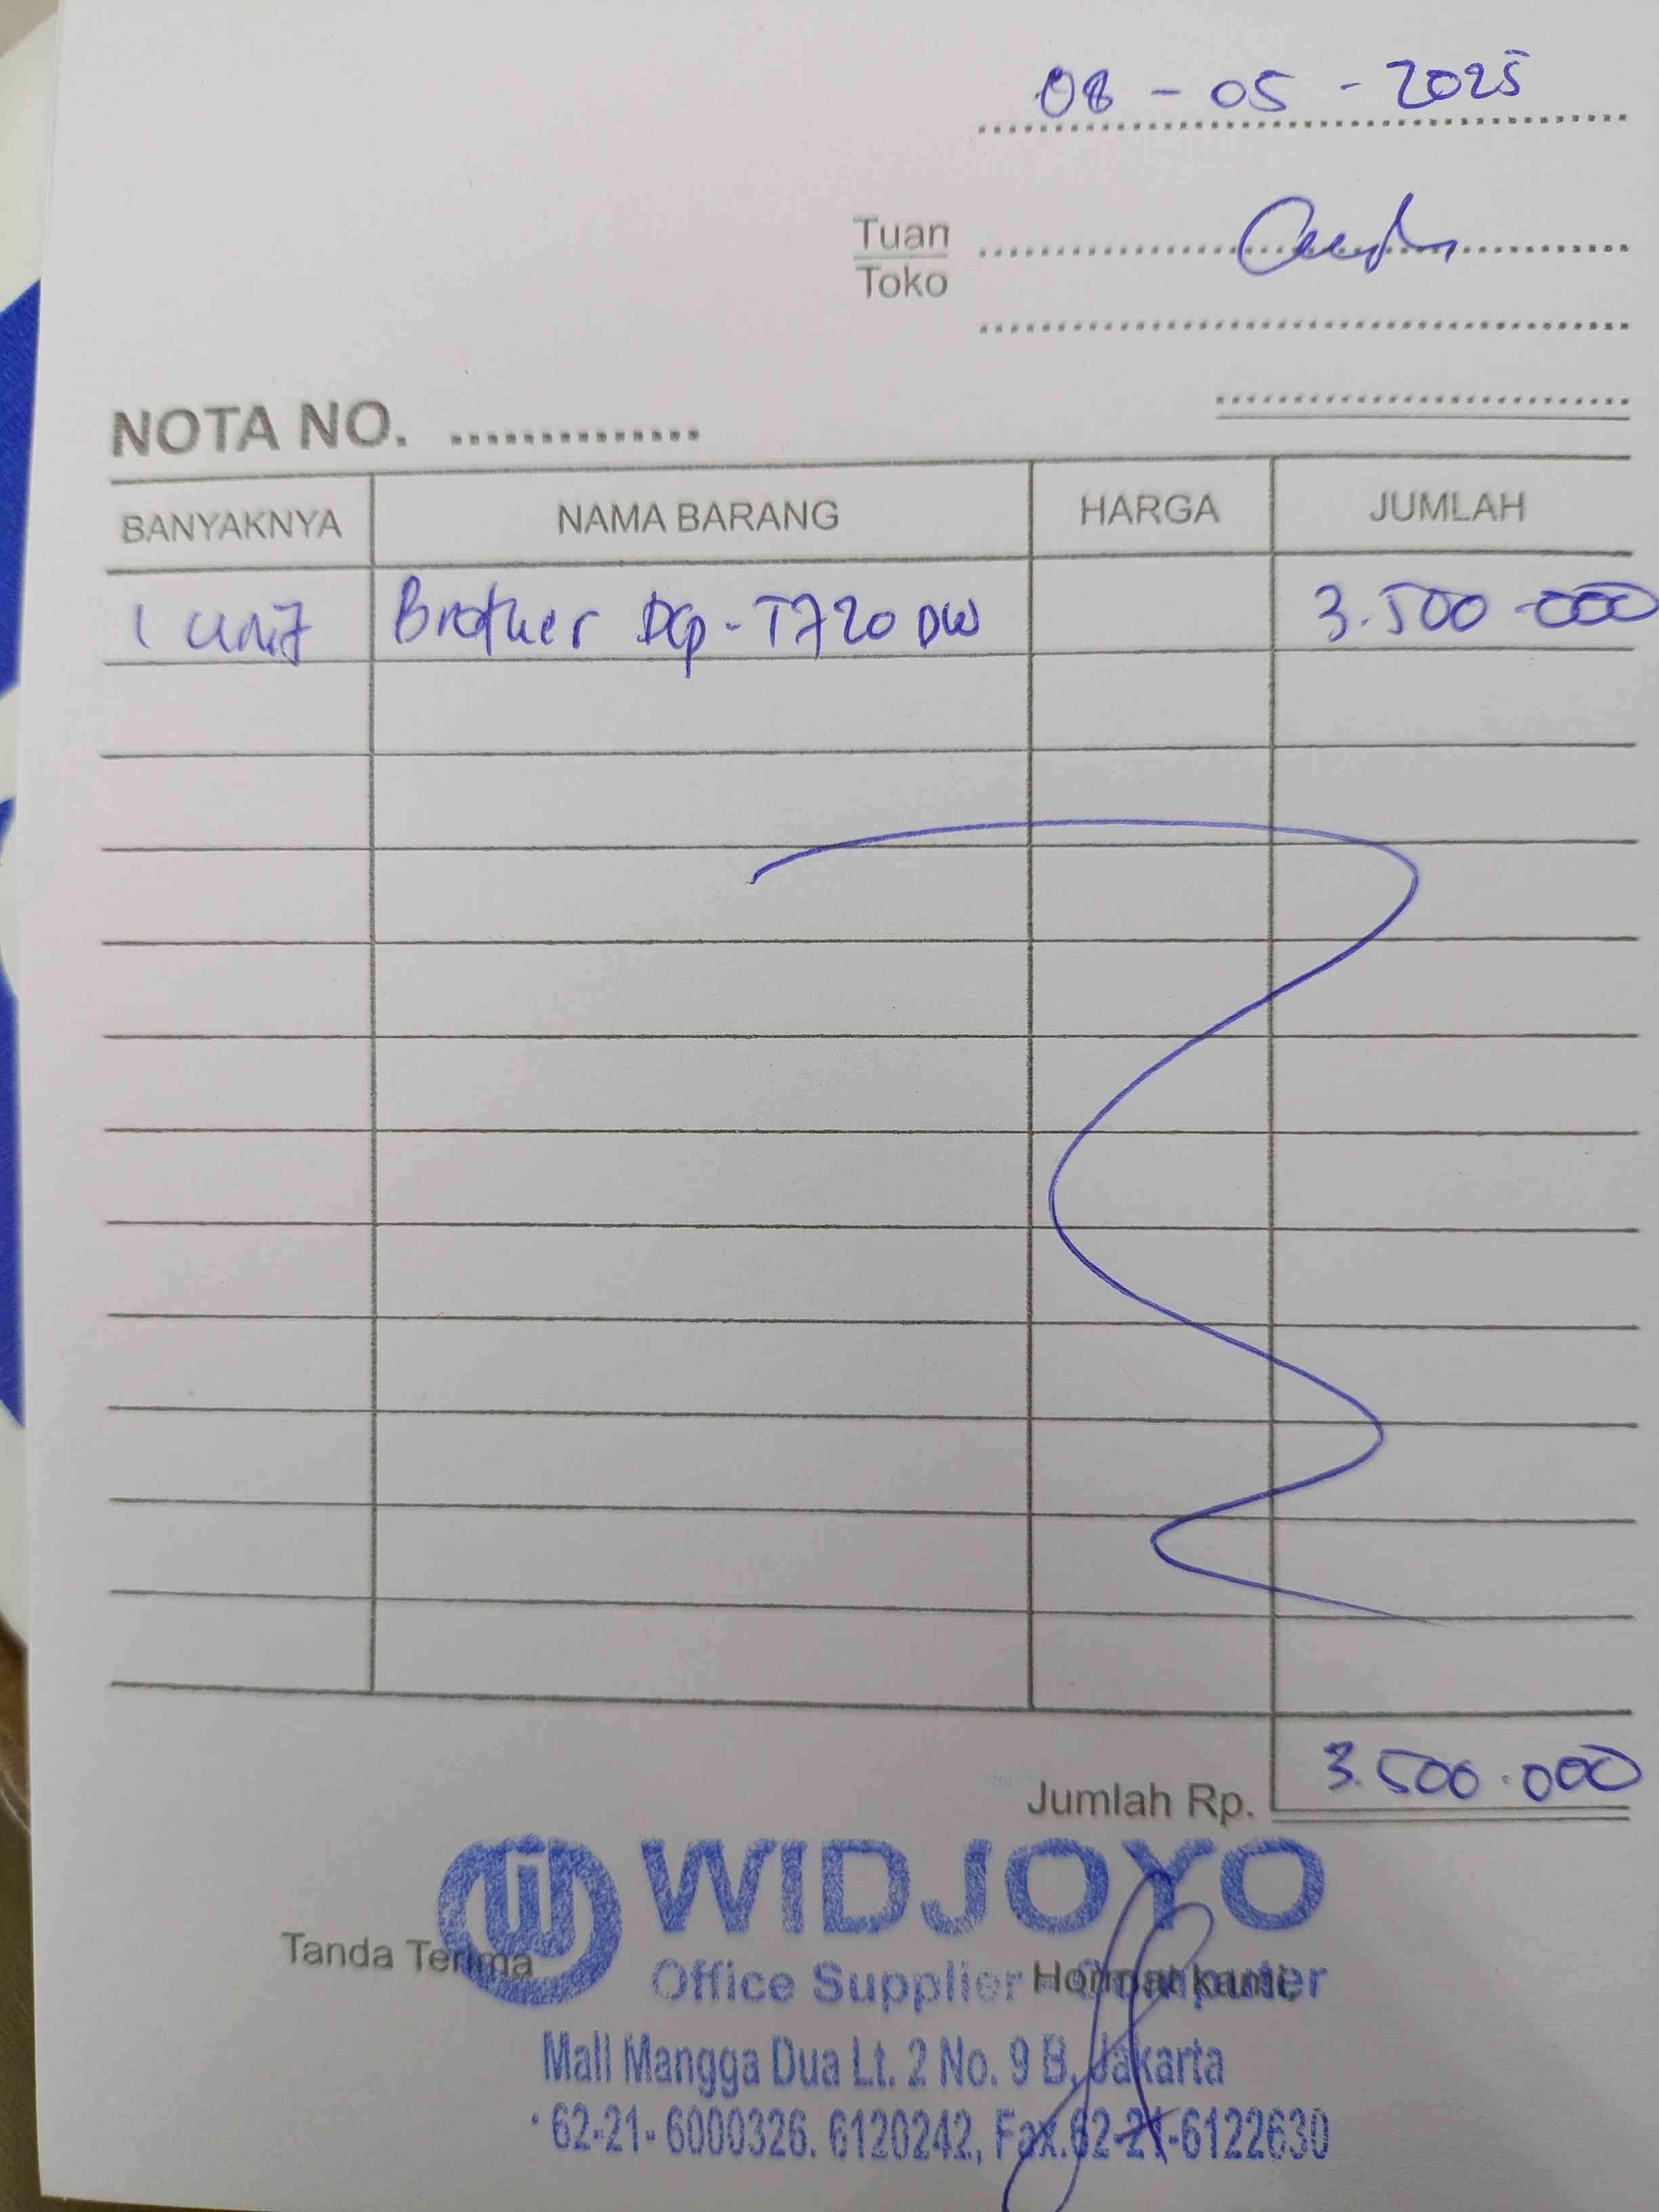 08 - 05 - 2025
Tuan
Toko
NOTA NO. ..............
BANYAKNYA NAMA BARANG HARGA JUMLAH
1 unit Brother DCP-T720DW 3.500.000
Jumlah Rp. 3.500.000
WIDJOYO
Tanda Terima
Office Supplier Computer
Hormat kami,
Mall Mangga Dua Lt. 2 No. 9 B, Jakarta
62-21- 6000326. 6120242, Fax.62-21-6122630